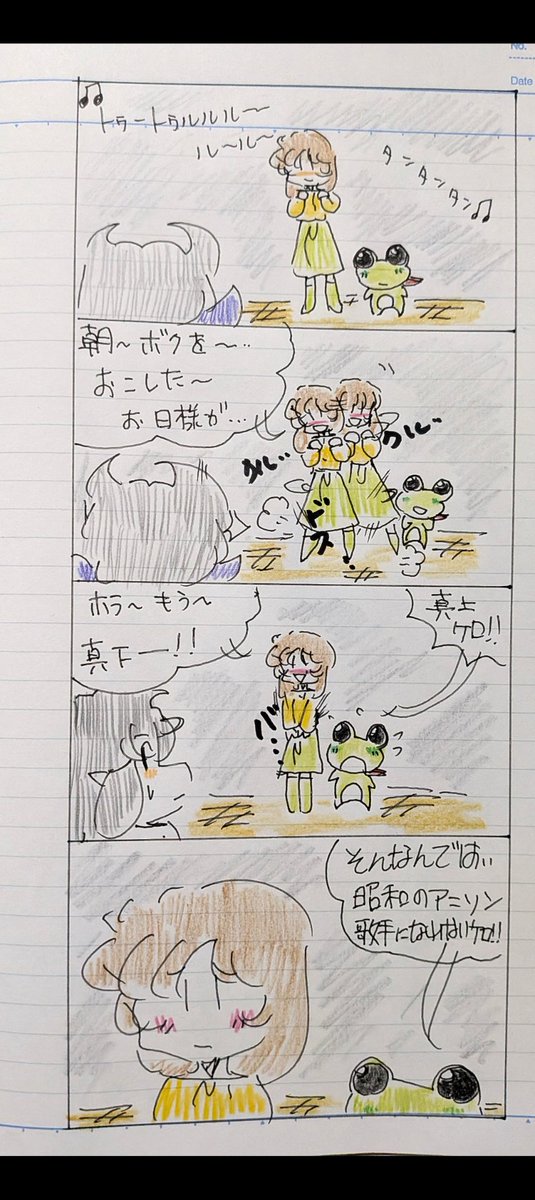 No.
Date
♫
トゥートゥルルルー〜
ルールー〜
タンタンタン♫
朝〜ボクを〜‥
おこした〜
お日様が…
クル‥
クル‥
ドス!
ホラ〜もう〜
真下ー!!
真上
ケロ!!
バ…
そんなんでは‥
昭和のアニソン
歌手になれないケロ!!